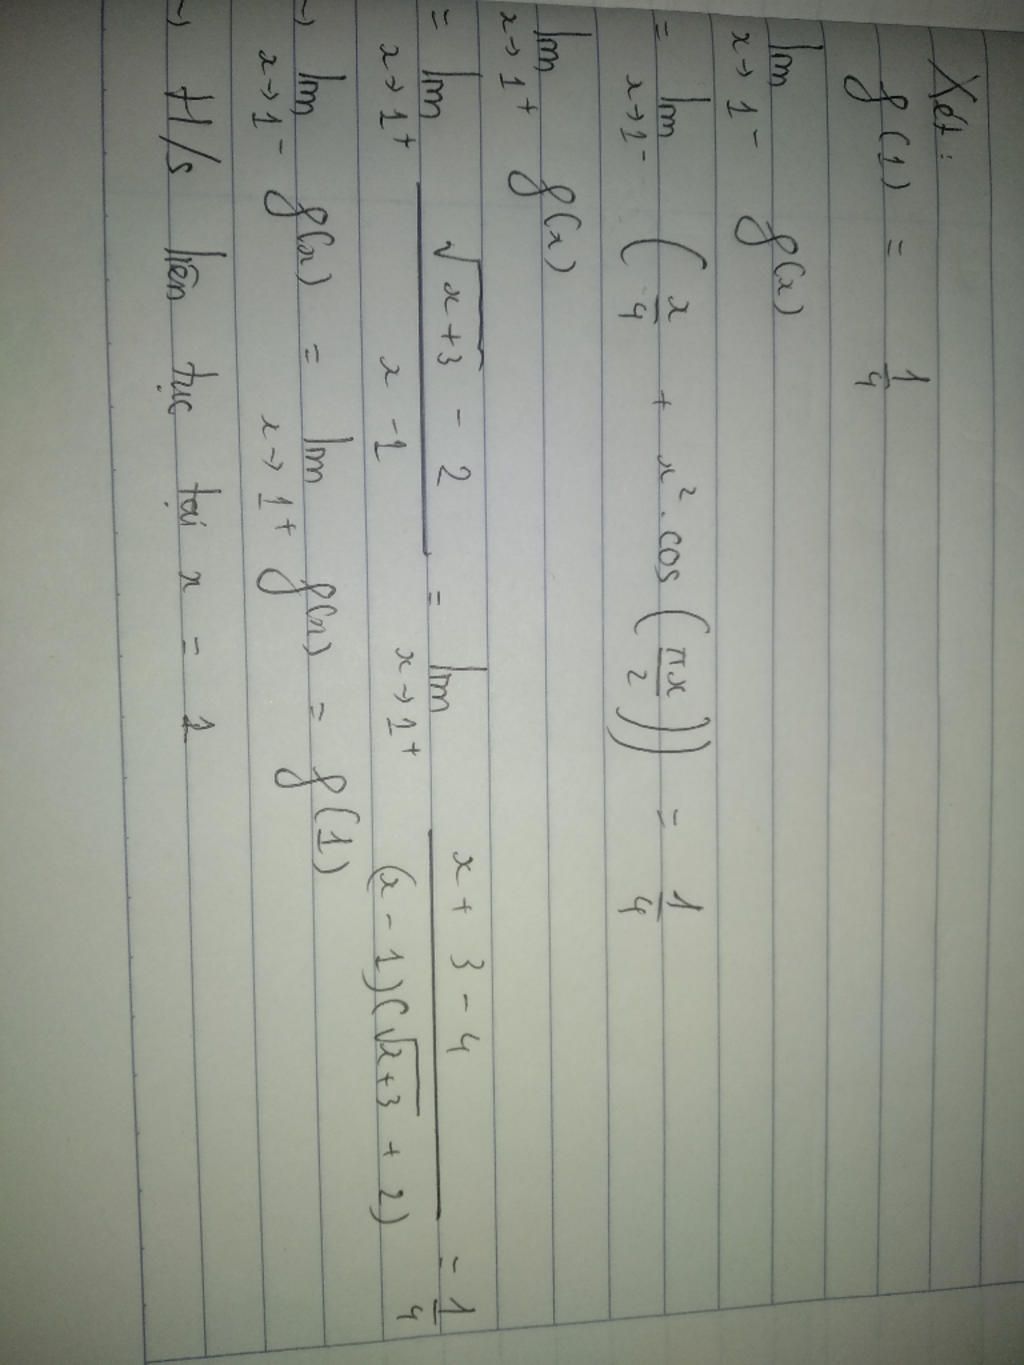 Xét:
f(1) = 1/4
lim x→1⁻ f(x)
= lim x→1⁻ (x/4 + x² . cos(πx/2)) = 1/4
lim x→1⁺ f(x)
= lim x→1⁺ (√(x+3) - 2)/(x - 1) = lim x→1⁺ (x + 3 - 4)/((x - 1)(√(x+3) + 2)) = 1/4
→ lim x→1⁻ f(x) = lim x→1⁺ f(x) = f(1)
→ H/s liên tục tại x = 1